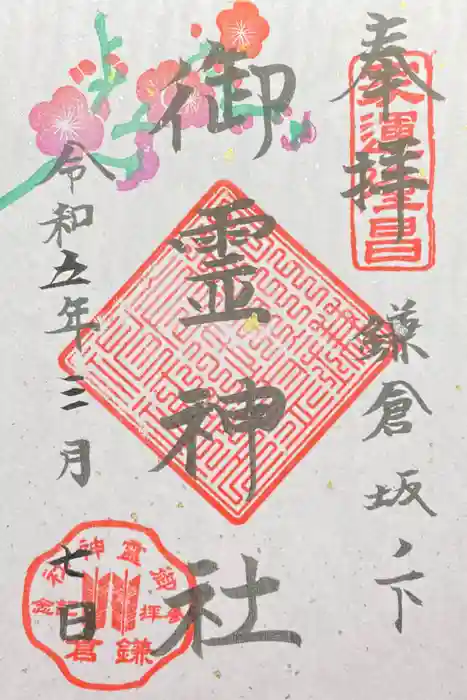 奉拝
鎌倉坂ノ下
御霊神社
令和五年三月七日
家運隆昌
御霊神社
参拝記念
鎌倉